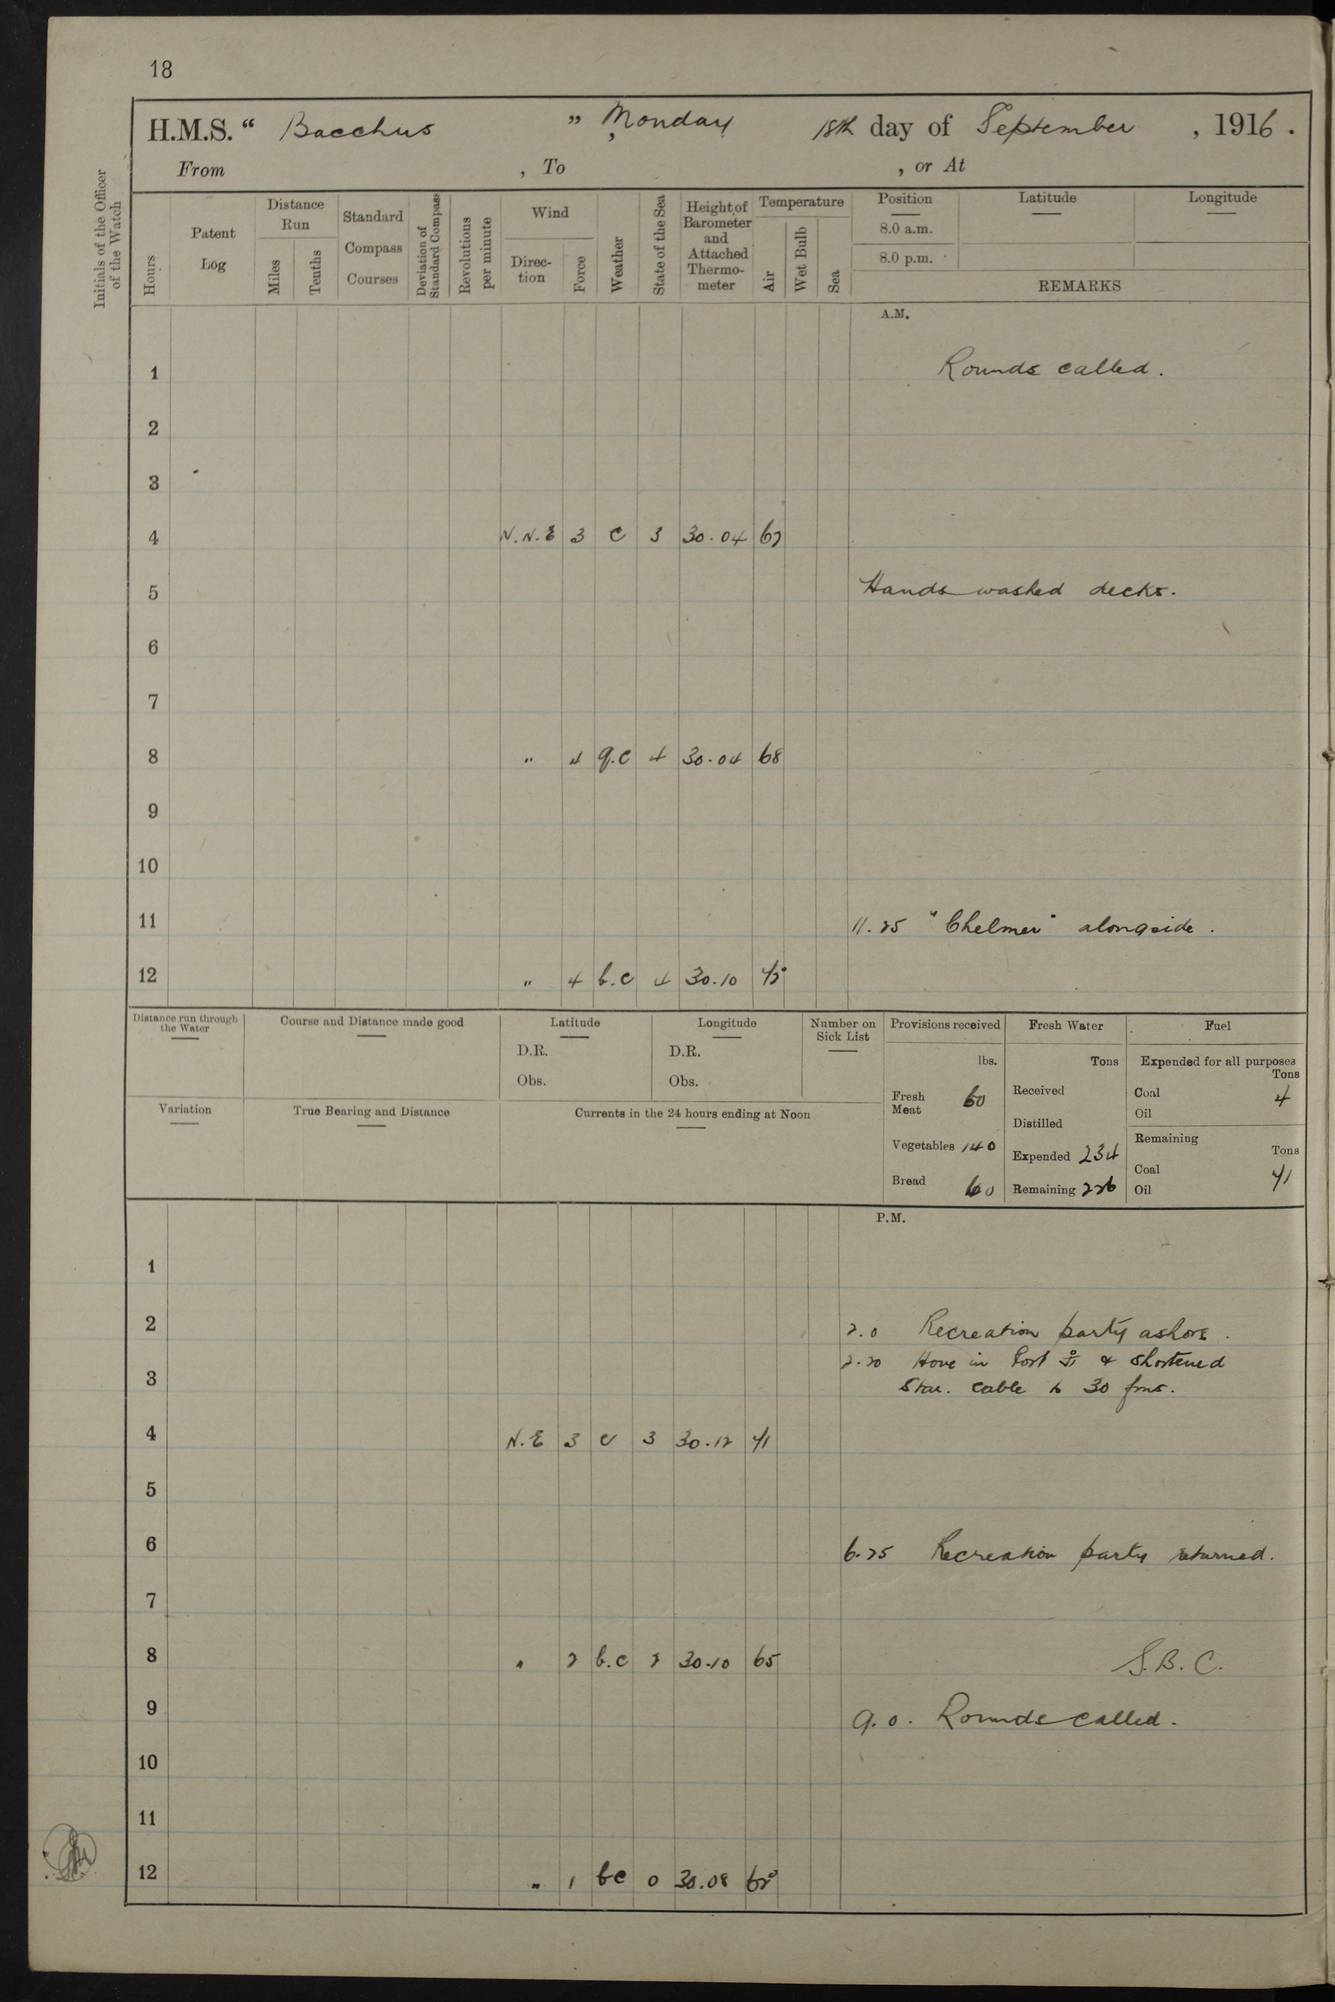 18
H.M.S. “ Bacchus ” , Monday 18th day of September , 1916 .
From , To , or At
Initials of the Officer of the Watch
Hours
Patent Log
Distance Run
Miles
Tenths
Standard Compass Courses
Deviation of Standard Compass
Revolutions per minute
Wind
Direction
Force
Weather
State of the Sea
Height of Barometer and Attached Thermometer
Temperature
Air
Wet Bulb
Sea
Position Latitude Longitude
8.0 a.m.
8.0 p.m.
REMARKS
A.M.
1 Rounds called.
2
3
4 N.N.E 3 c 3 30.04 67
5 Hands washed decks.
6
7
8 " 4 q.c 4 30.04 68
9
10
11 11.25 "Chelmer" alongside.
12 " 4 b.c 4 30.10
Distance run through the Water
Course and Distance made good
Latitude
D.R.
Obs.
Longitude
D.R.
Obs.
Number on Sick List
Provisions received
lbs.
Fresh Meat 60
Vegetables 140
Bread 60
Fresh Water
Tons
Received
Distilled
Expended 234
Remaining 226
Fuel
Expended for all purposes
Tons
Coal 4
Oil
Remaining
Tons
Coal 71
Oil
Variation
True Bearing and Distance
Currents in the 24 hours ending at Noon
P.M.
1
2 2.0 Recreation party ashore.
2.20 Hove in Port & shortened
3 Star. cable to 30 fms.
4 N.E 3 c 3 30.12 71
5
6 6.25 Recreation party returned.
7
8 " 2 b.c 2 30.10 65 S.B.C.
9 9.0. Rounds called.
10
11
12 " 1 bc 0 30.08